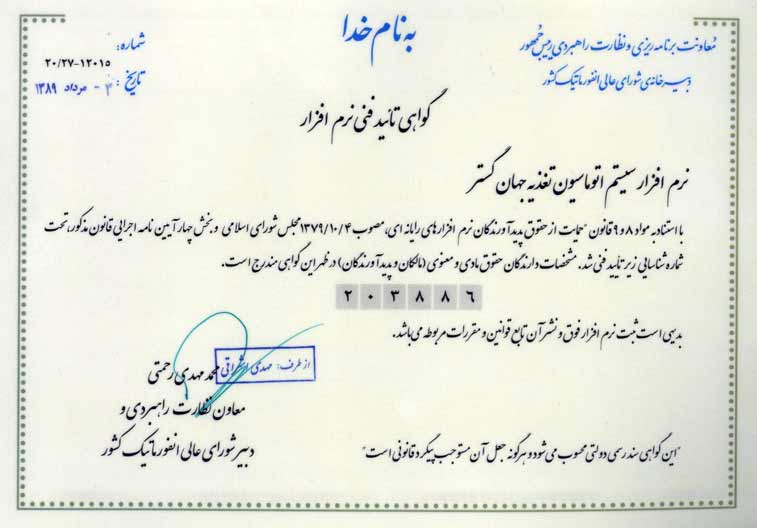 به نام خدا
معاونت برنامه ریزی و نظارت راهبردی رییس جمهور
دبیرخانه‌ی شورای عالی انفورماتیک کشور
شماره:
۲۰/۲۷-۱۲۰۱۵
تاریخ: ۳ - مرداد ۱۳۸۹
گواهی تائید فنی نرم افزار
نرم افزار سیستم اتوماسیون تغذیه جهان گستر
با استناد به مواد ۸ و ۹ قانون "حمایت از حقوق پدیدآورندگان نرم افزارهای رایانه ای، مصوب ۱۳۷۹/۱۰/۴ مجلس شورای اسلامی و بخش چهار آیین نامه اجرایی قانون مذکور، تحت
شماره شناسایی زیر تأیید فنی شد. مشخصات دارندگان حقوق مادی و معنوی (مالکان و پدیدآورندگان) در ظهر این گواهی مندرج است.
۲۰۳۸۸۶
بدیهی است ثبت نرم افزار فوق و نشر آن تابع قوانین و مقررات مربوطه می باشد.
از طرف: مهدی اشراقی
محمد مهدی رحمتی
معاون نظارت راهبردی و
دبیر شورای عالی انفورماتیک کشور
"این گواهی سندرسمی دولتی محسوب می شود و هرگونه جعل آن مستوجب پیگرد قانونی است"